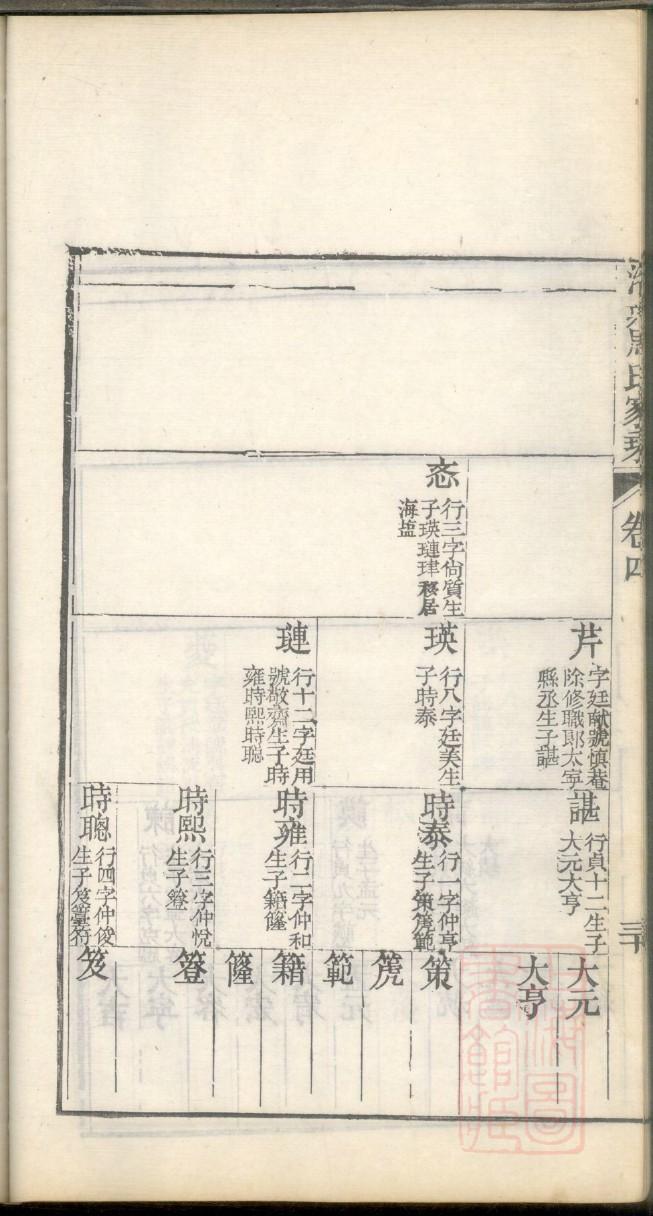 周氏家乘
卷四
三十
忞
行三字尙質生
子瑛璉珒移居
海盐
芹
字廷獻號慎菴
除修職郎太寕
縣丞生子諶
瑛
行八字廷美生
子時泰
璉
行十二字廷用
號敬齋生子時
雍時熙時聰
諶
行貞十二生子
大元大亨
時泰
行一字仲亨
生子策篪範
時雍
行二字仲和
生子籍篷
時熙
行三字仲悅
生子簦
時聰
行四字仲俊
大元
大亨
策
篪
範
籍
簦
笈